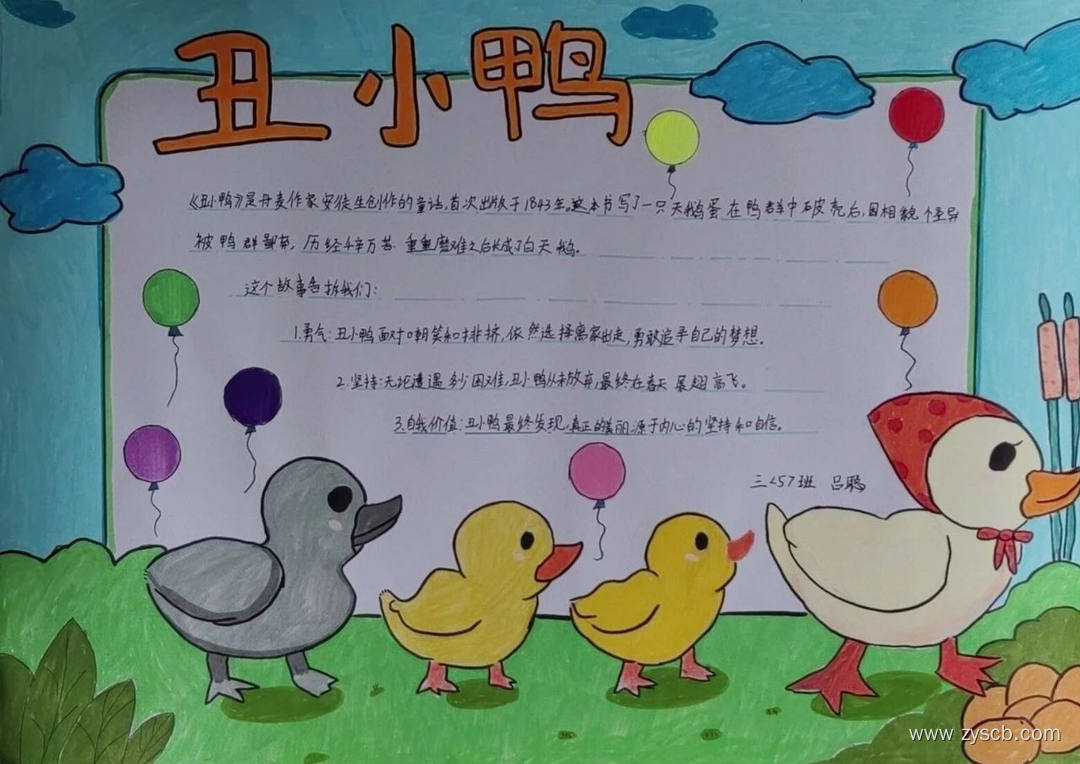 丑小鸭
《丑小鸭》是丹麦作家安徒生创作的童话,首次出版于1843年。这本书写了一只天鹅蛋在鸭群中破壳后,因相貌怪异
被鸭群鄙弃,历经千辛万苦、重重磨难之后长成了白天鹅。
这个故事告诉我们:
1.勇气:丑小鸭面对嘲笑和排挤,依然选择离家出走,勇敢追寻自己的梦想。
2.坚持:无论遭遇多少困难,丑小鸭从未放弃,最终在春天展翅高飞。
3.自我价值:丑小鸭最终发现,真正的美丽源于内心的坚持和自信。
三<5>班 吕聪
www.zyscb.com